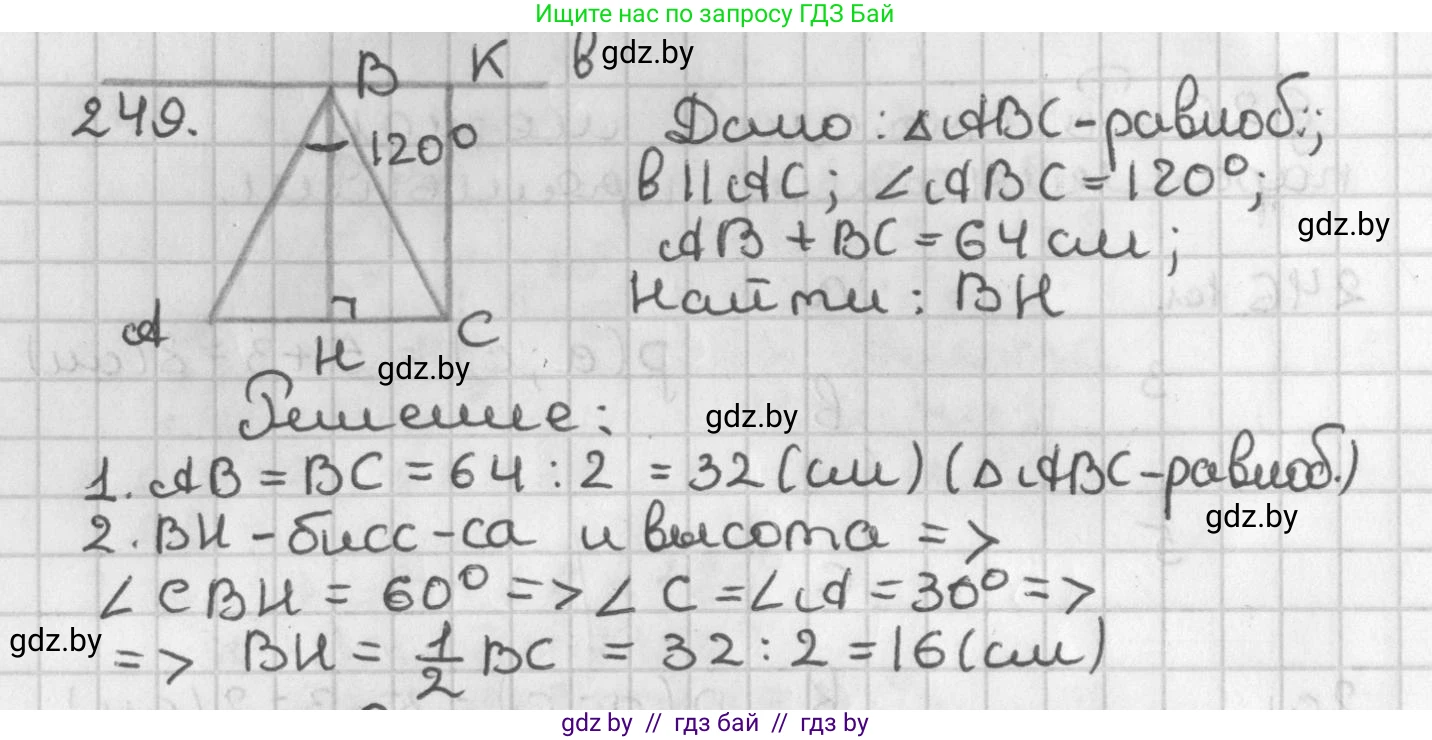 Ищите нас по запросу ГДЗ Бай
B K в gdz.by
249.
120°
Дано: △ABC-равноб.;
в||AC; ∠ABC=120°;
gdz.by
AB+BC=64 см;
Найти: BH
A H C
gdz.by
Решение:
gdz.by
1. AB=BC=64:2=32(см) (△ABC-равноб.)
gdz.by
2. BH-бисс-са и высота =>
∠CBH=60°=>∠C=∠A=30°=>
gdz.by
=> BH=1/2 BC=32:2=16(см)
gdz by // гдз бай // gdz by